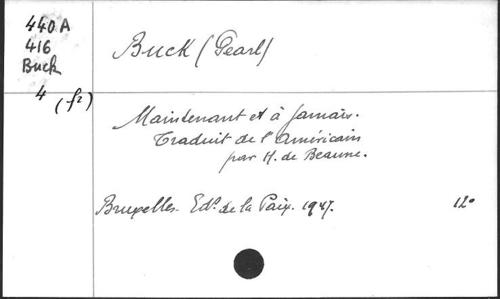 440A
416
Buck
4 (f2)
Buck (Pearl)
Maintenant et à jamais.
Traduit de l'Américain
par H. de Beaune.
Bruxelles. Edº. de la Paix. 1947.
12º